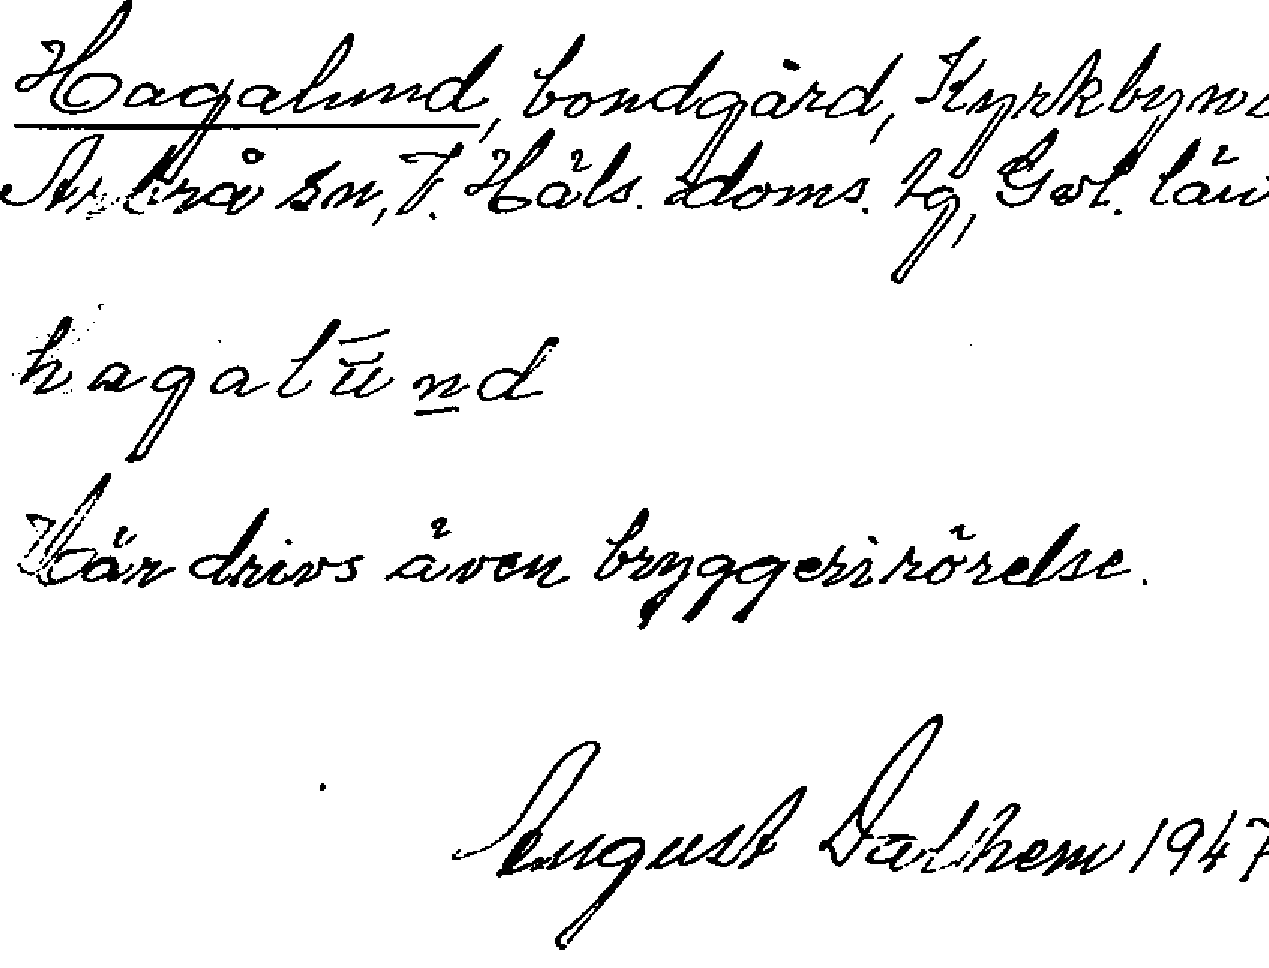 Hagalund, bondgård, Kyrkbyn
Arbrå sn, V. Häls. doms. tg, Gvl. län
hagalūn̲d
Här drivs även bryggerirörelse.
August Dalhem 1947